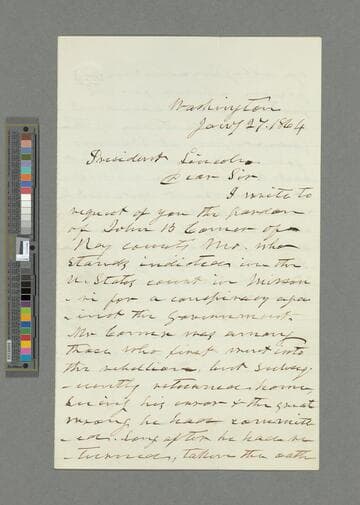 Washington
Jany 27. 1864
President Lincoln
Dear Sir
I write to
request of you the pardon
of John B Corner of
Ray county Mo. who
stands indicted in the
U. States court in Missou
-ri for a conspiracy aga
-inst the government.
Mr Corner was among
those who first went into
the rebellion, but subse
-quently returned home
seeing his error & the great
wrong he had committ
-ed. Long after he had re
-turned, taken the oath